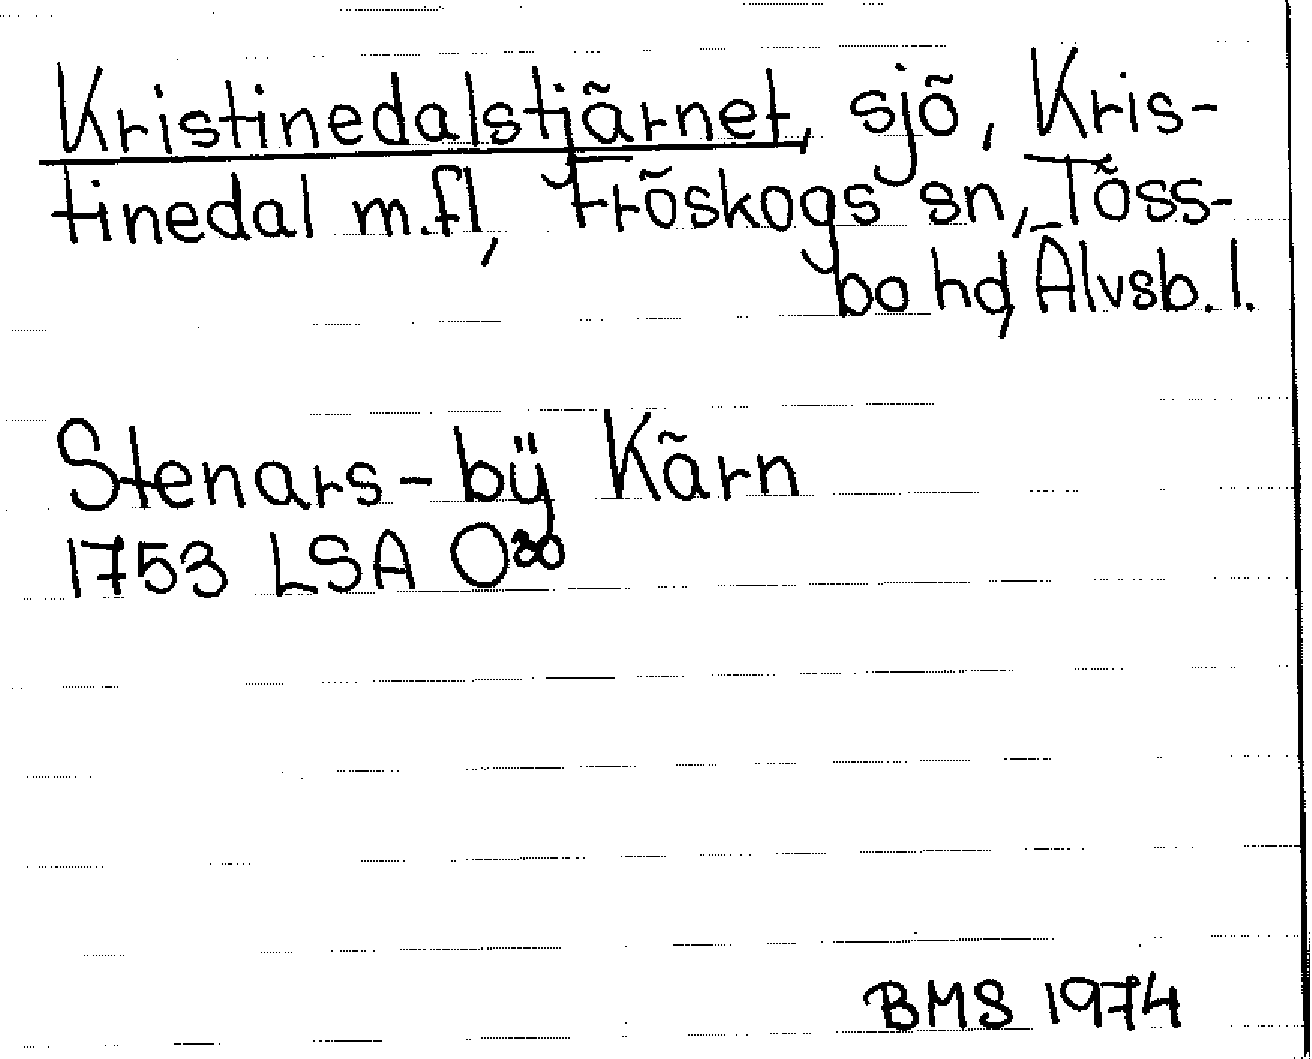 Kristinedalstjärnet, sjö, Kris-
tinedal m.fl, Fröskogs sn, Töss-
bo hd, Älvsb. l.
Stenars-bÿ Kärn
1753 LSA O³⁰
BMS 1974